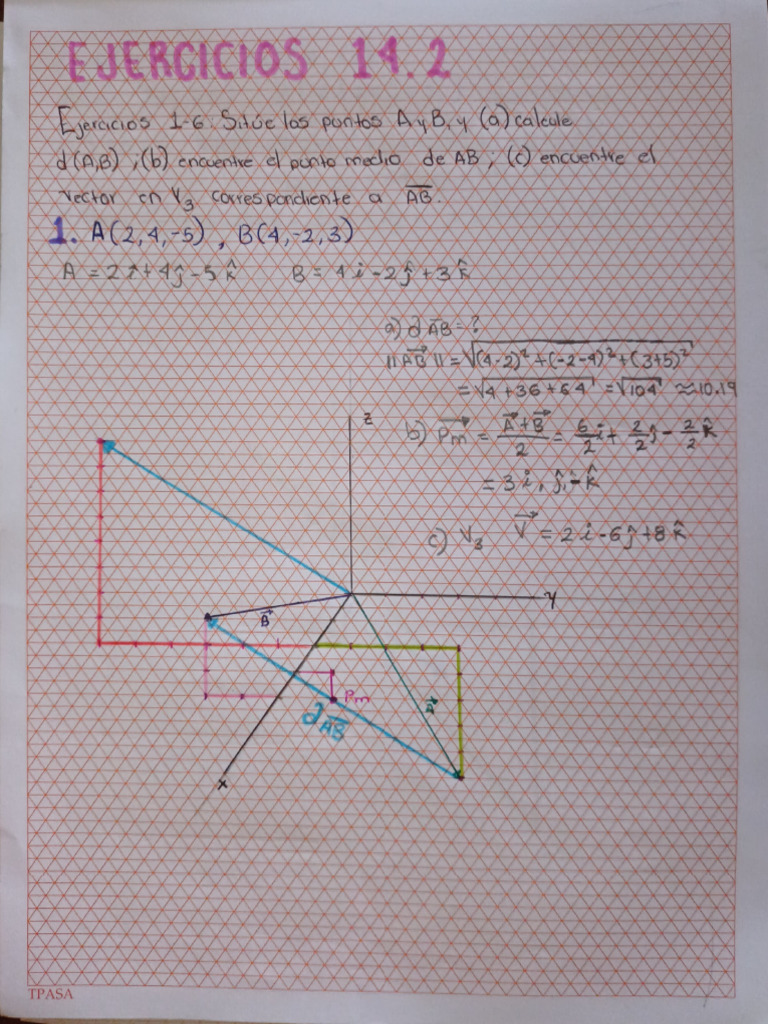 EJERCICIOS 14.2
Ejercicios 1-6: Sitúe los puntos A y B, y (a) calcule
d(A,B), (b) encuentre el punto medio de AB; (c) encuentre el
vector en V₃ correspondiente a \overline{AB}.
1. A(2,4,-5), B(4,-2,3)
A = 2î+4ĵ-5k̂ B = 4i-2ĵ+3k̂
a) d \overline{AB} = ?
||\overrightarrow{AB}|| = √((4-2)²+(-2-4)²+(3+5)²)
= √(4+36+64) = √104 ≈10.19
b) \overrightarrow{Pm} = (\vec{A}+\vec{B})/2 = 6/2 i + 2/2 ĵ - 2/2 k̂
= 3i, ĵ, -k̂
c) V₃ \vec{V} = 2i-6ĵ+8k̂
z
y
\vec{B}
Pm
\vec{A}
d\overline{AB}
x
TPASA